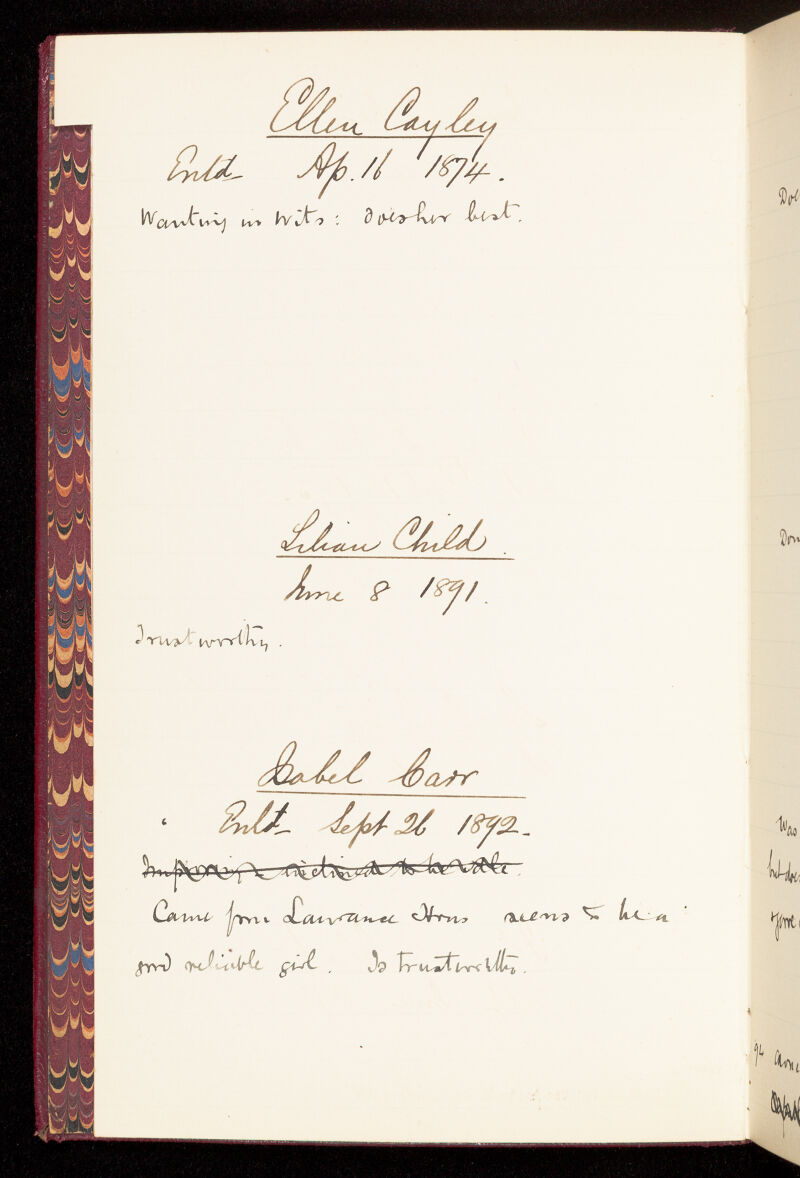 Ellen Cayley
Entd Ap. 16 1874.
Wanting in wits: does her best.
Lilian Child.
June 8 1891.
Trustworthy.
Isabel Carr
Entd Sept 26 1892.
inclined to be idle.
Came from Laurance seems to be a
good reliable girl. Is trustworthy.
Was
94